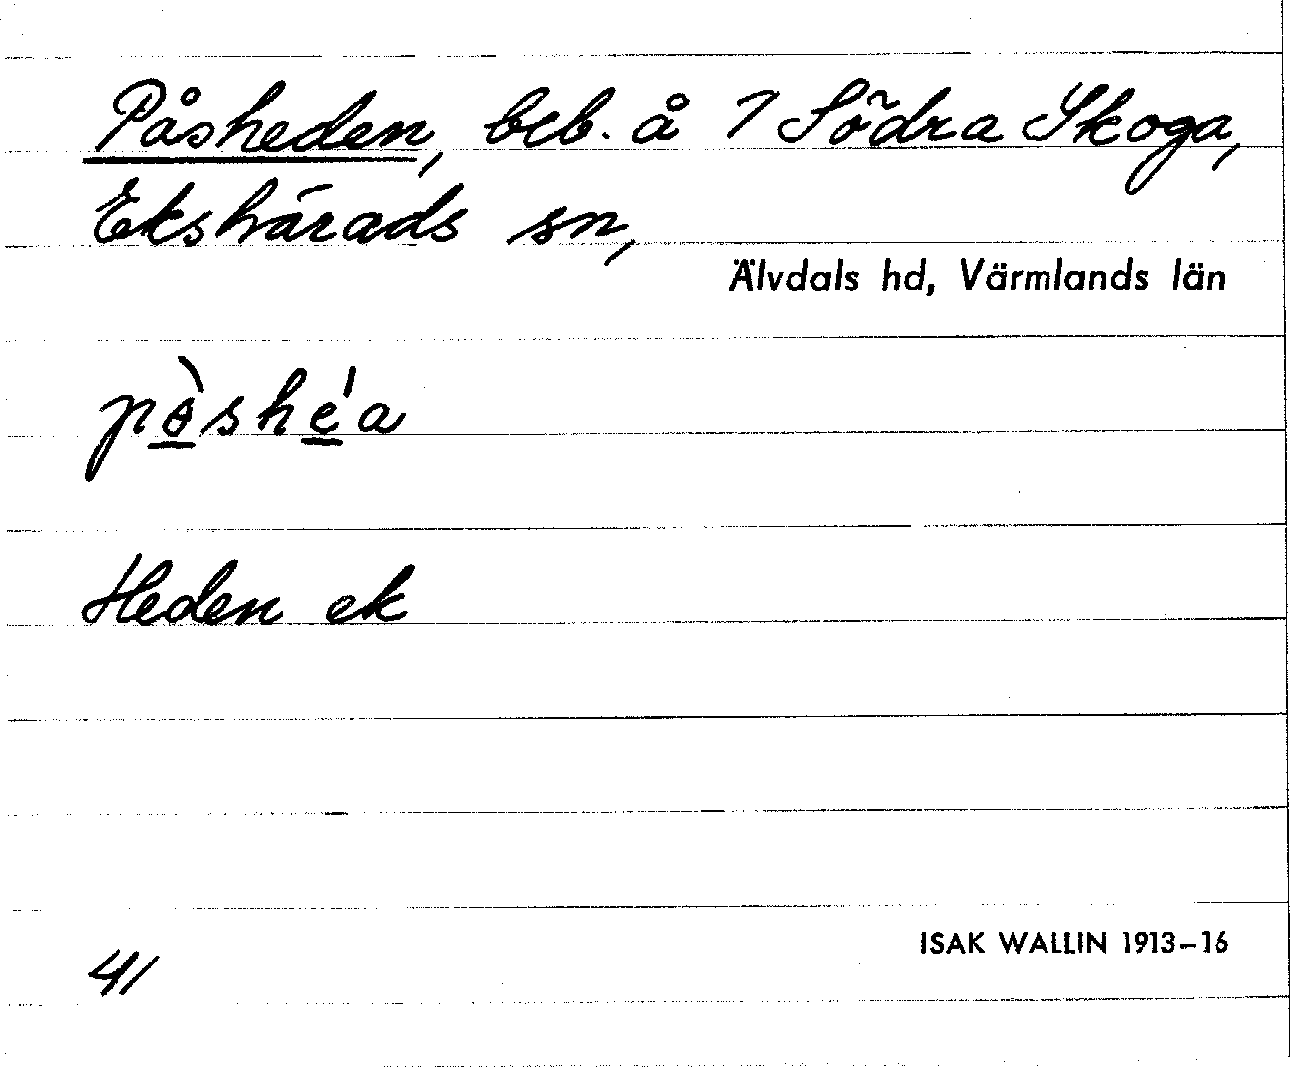 Påsheden, beb. å 7 Södra Skoga,
Ekshärads sn,
Älvdals hd, Värmlands län
pɵ̀she̲´a
Heden ek
ISAK WALLIN 1913–16
41